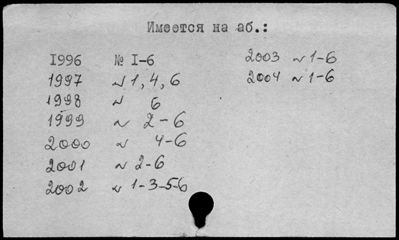 Имеется на аб.:
I996 № I-6
1997 № 1, 4, 6
1998 № 6
1999 № 2-6
2000 № 4-6
2001 № 2-6
2002 № 1-3-5-6
2003 № 1-6
2004 № 1-6